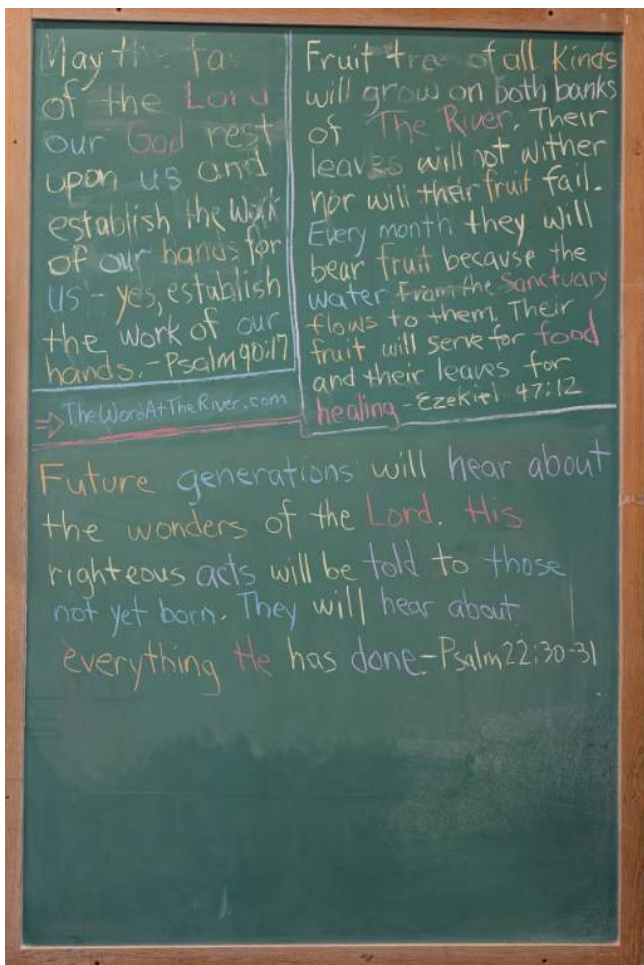 May the fa
of the Lord
our God rest
upon us and
establish the Work
of our hands for
us - yes, establish
the work of our
hands. - Psalm 90:17
⇒ TheWordAtTheRiver.com
Fruit tree of all Kinds
will grow on both banks
of The River. Their
leaves will not wither
nor will their fruit fail.
Every month they will
bear fruit because the
water From the Sanctuary
flows to them. Their
fruit will serve for food
and their leaves for
healing - Ezekiel 47:12
Future generations will hear about
the wonders of the Lord. His
righteous acts will be told to those
not yet born. They will hear about
everything He has done. - Psalm 22:30-31